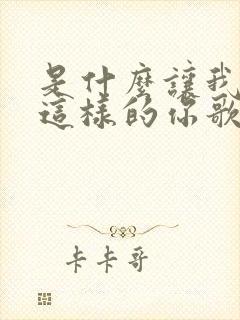 是什麼讓我
這樣的你歌
卡卡哥